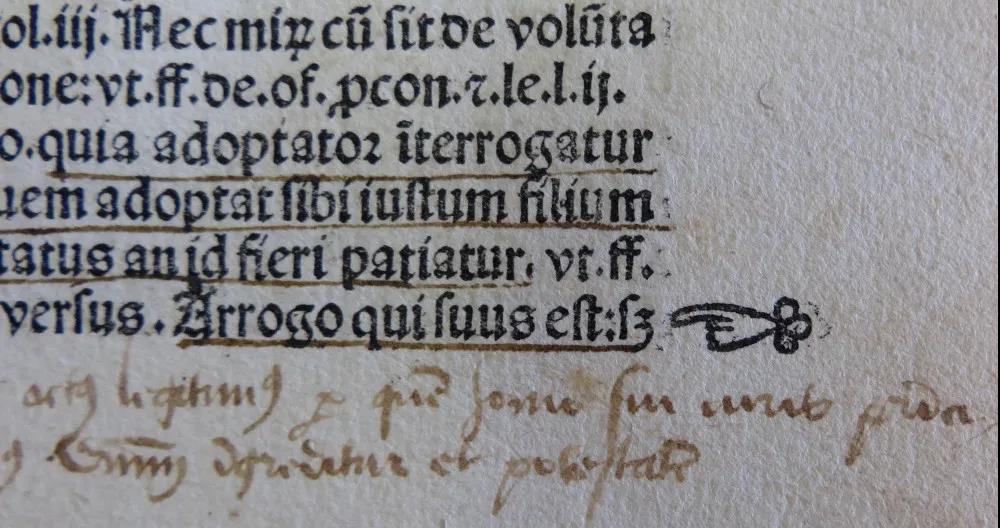 ol.iij. Nec miꝝ cū ſit de volūta
one: vt.ff.de.of.ꝓcon.⁊.le.l.ij.
o. quia adoptatoꝛ īterrogatur
uem adoptat ſibi iuſtum filium
tatus an id fieri patiatur. vt.ff.
verſus. Arrogo qui ſuus eſt: ſꝫ
actꝰ legitimꝰ ꝑ quē homo ſui iuris
et poteſtatē